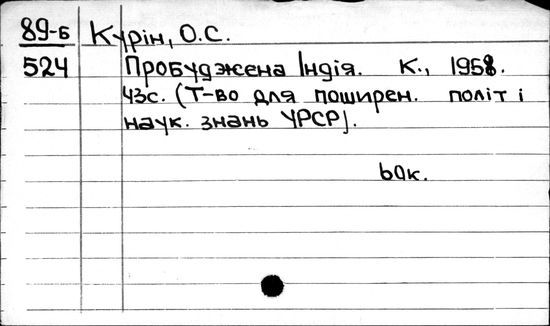 89-Б Курін, О.С.
524 Пробуджена Індія. К., 1958.
43с. (Т-во для поширен. політ і
наук. знань УРСР).
60к.